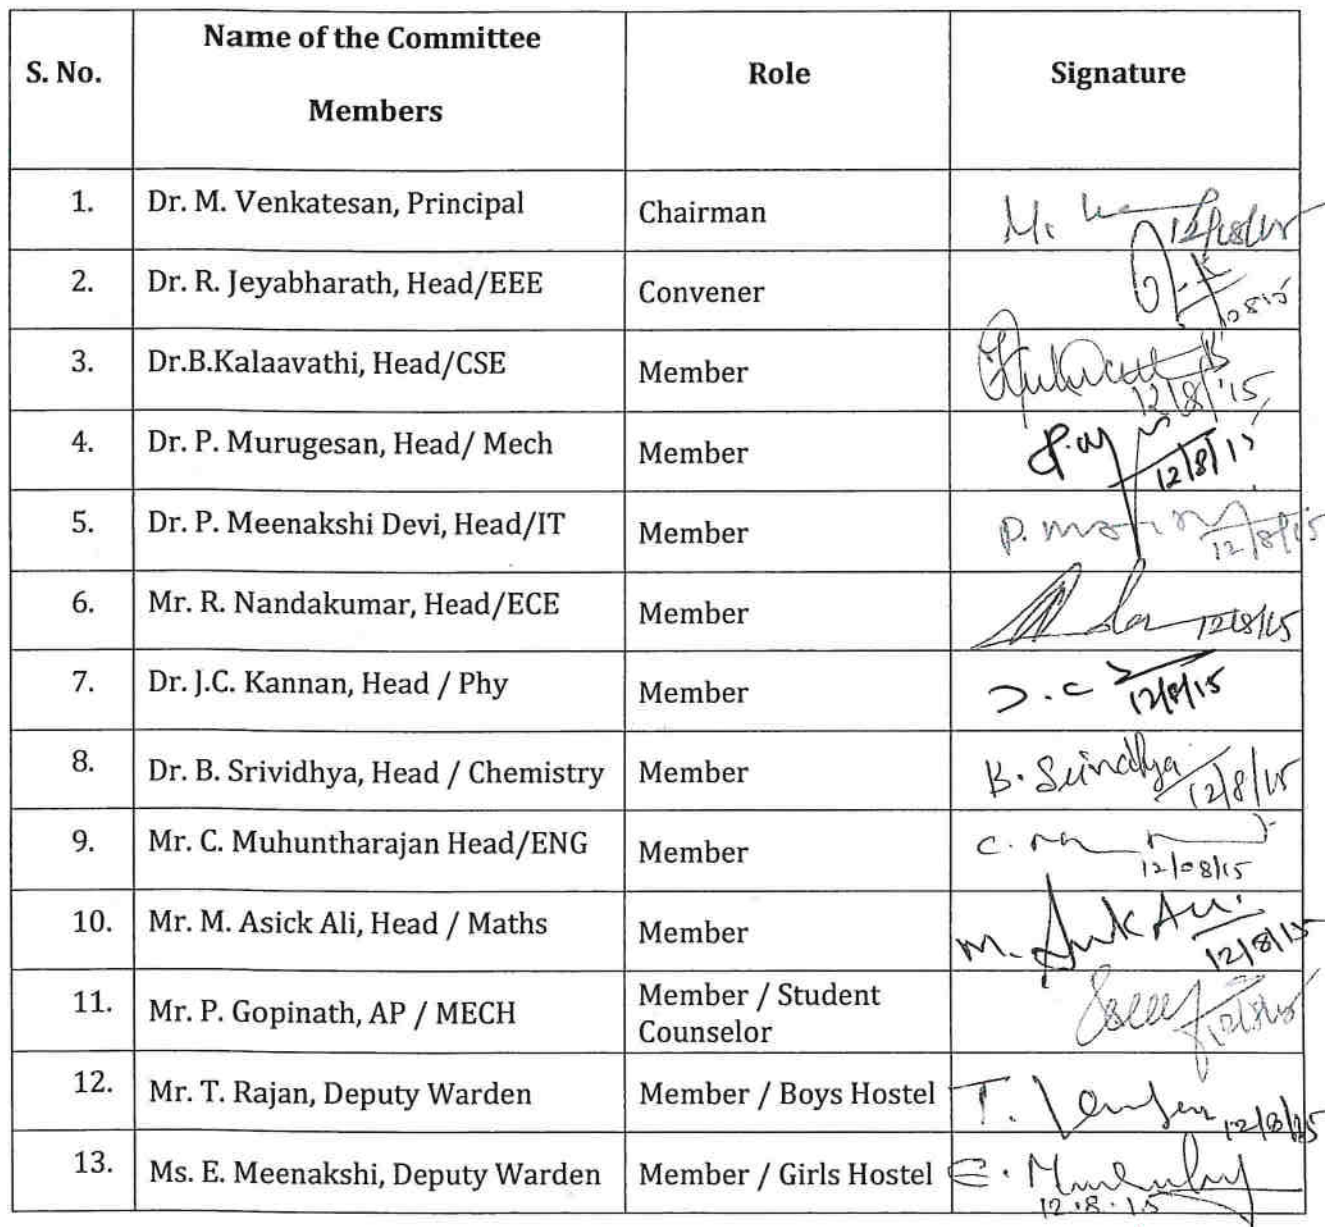 S. No.
Name of the Committee
Members
Role
Signature
1.
Dr. M. Venkatesan, Principal
Chairman
M.
12/8/15
2.
Dr. R. Jeyabharath, Head/EEE
Convener
3.
Dr.B.Kalaavathi, Head/CSE
Member
12/8/'15
4.
Dr. P. Murugesan, Head/ Mech
Member
12/8/15
5.
Dr. P. Meenakshi Devi, Head/IT
Member
P.
12/8/15
6.
Mr. R. Nandakumar, Head/ECE
Member
12/8/15
7.
Dr. J.C. Kannan, Head / Phy
Member
J.C
12/8/15
8.
Dr. B. Srividhya, Head / Chemistry
Member
B. Srividhya
12/8/15
9.
Mr. C. Muhuntharajan Head/ENG
Member
C.
12/08/15
10.
Mr. M. Asick Ali, Head / Maths
Member
M. Asick Ali.
12/8/15
11.
Mr. P. Gopinath, AP / MECH
Member / Student
Counselor
12/8/15
12.
Mr. T. Rajan, Deputy Warden
Member / Boys Hostel
T.
12/8/15
13.
Ms. E. Meenakshi, Deputy Warden
Member / Girls Hostel
E.
12.8.15